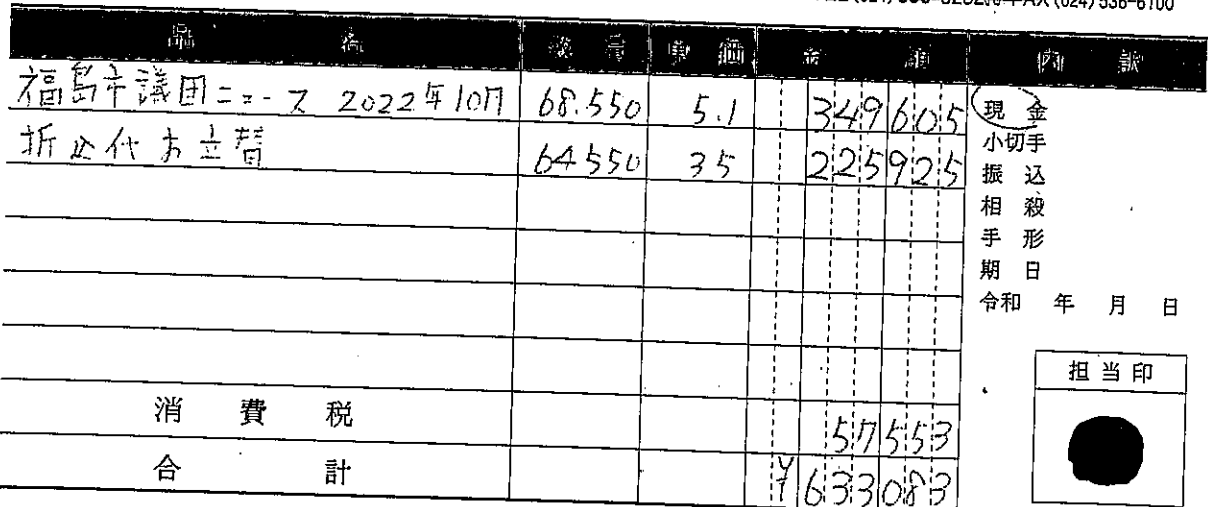 (024) 536-6100
品 名 数 量 単 価 金 額 内 訳
福島市議団ニュース 2022年10月 68.550 5.1 349605 現 金
小切手
折込代お立替 64550 35 225925 振 込
相 殺
手 形
期 日
令和 年 月 日
担当印
消 費 税 57553
合 計 ¥633083